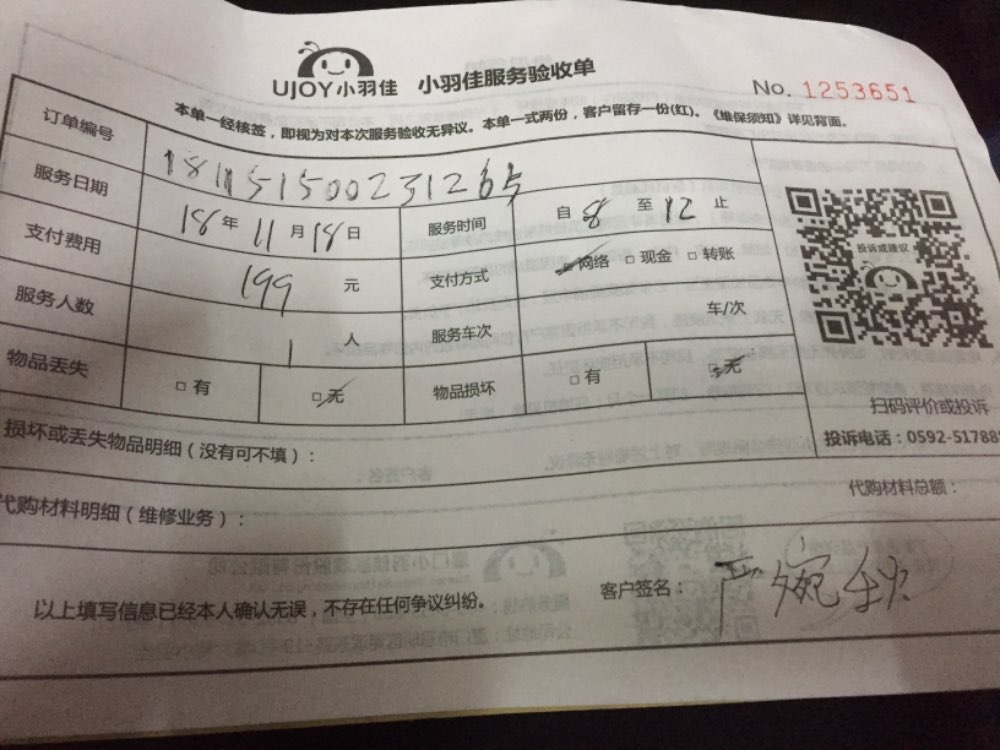 UJOY小羽佳 小羽佳服务验收单
No. 1253651
本单一经核签，即视为对本次服务验收无异议。本单一式两份，客户留存一份(红)。《维保须知》详见背面。
订单编号 1811151500231265
服务日期 18年11月18日 服务时间 自8至12止
支付费用 199 元 支付方式 网络 现金 转账
服务人数 1 人 服务车次 车/次
物品丢失 有 无 物品损坏 有 无
投诉或建议
扫码评价或投诉
投诉电话：0592-51788
损坏或丢失物品明细（没有可不填）：
代购材料明细（维修业务）： 代购材料总额：
以上填写信息已经本人确认无误，不存在任何争议纠纷。 客户签名：严婉秋